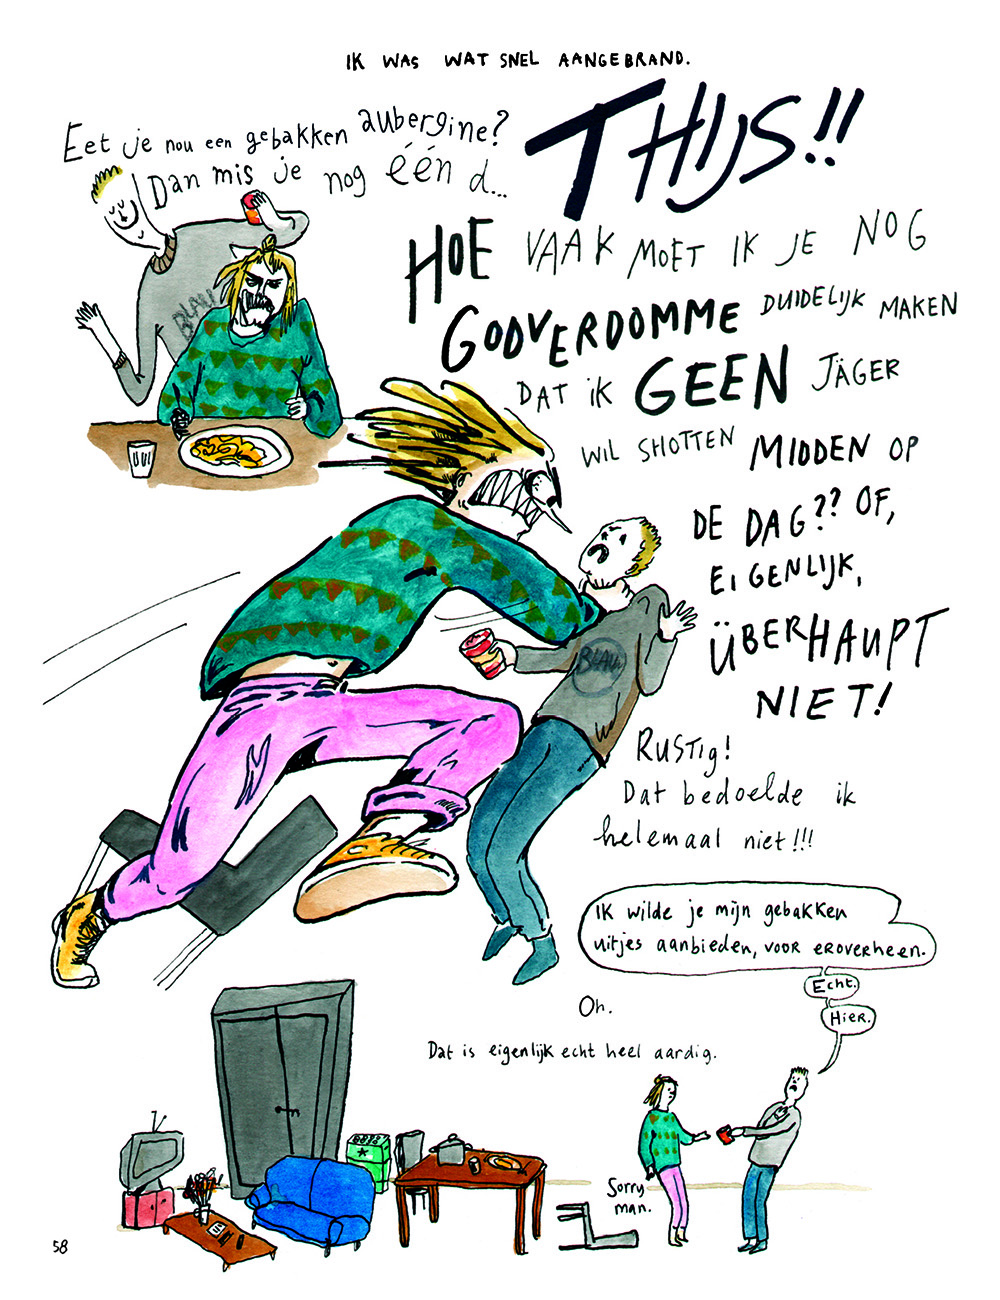 IK WAS WAT SNEL AANGEBRAND.
Eet je nou een gebakken aubergine?
Dan mis je nog één d...
BLAU
THIJS!!
HOE VAAK MOET IK JE NOG
GODVERDOMME DUIDELIJK MAKEN
DAT IK GEEN JÄGER
WIL SHOTTEN MIDDEN OP
DE DAG?? OF,
EIGENLIJK,
ÜBERHAUPT
NIET!
BLAUW
RUSTIG!
Dat bedoelde ik
helemaal niet!!!
IK wilde je mijn gebakken
uitjes aanbieden, voor eroverheen.
Echt.
Hier.
Oh.
Dat is eigenlijk echt heel aardig.
Sorry
man.
58